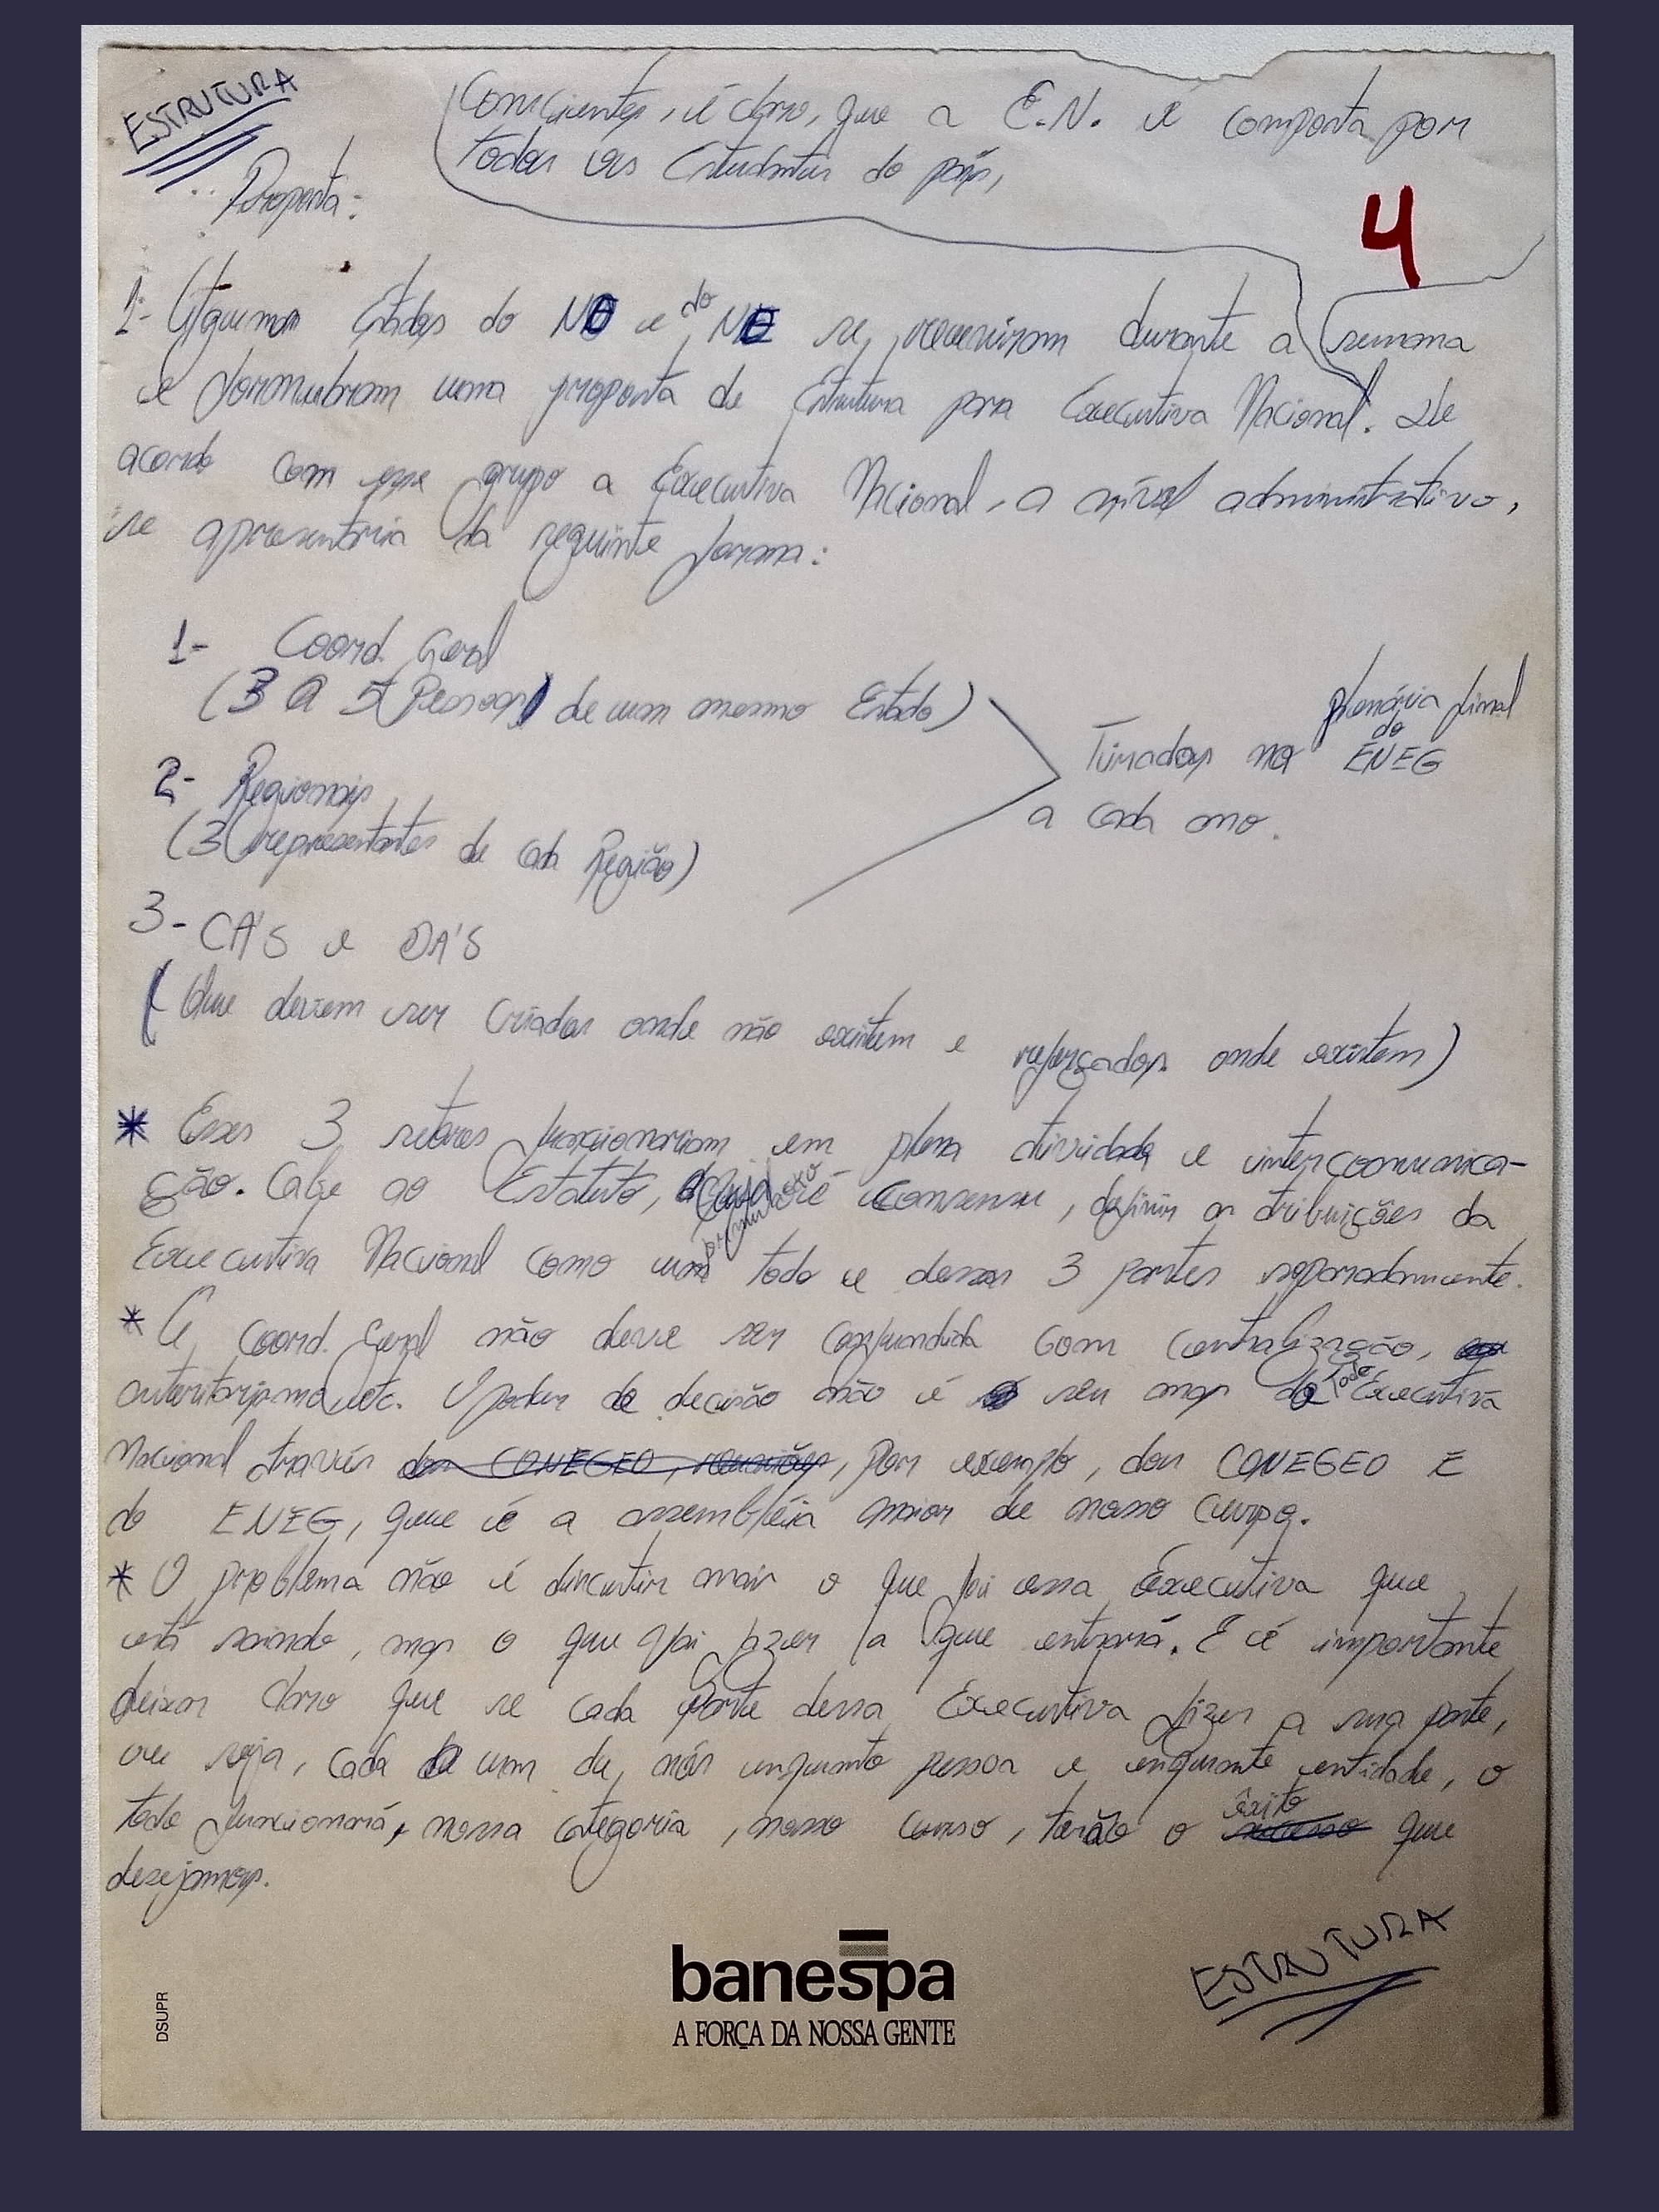 ESTRUTURA
Conscientes, é claro, que a E.N. é composta por
todos os Estudantes do país,
Proposta:
4
1- Alguns Estados do NO e do NE se reuniram durante a semana
e formularam uma proposta de Estrutura para Executiva Nacional. De
acordo com esse grupo a Executiva Nacional, a nível administrativo,
se apresentaria da seguinte forma:
1- Coord. Geral
(3 a 5 Pessoas de um mesmo Estado)
plenária final
Tirados na do ENEG
a cada ano.
2- Regionais
(3 representantes de cada Região)
3- CA'S e DA'S
(Que devem ser criados onde não existem e reforçados onde existem)
* Esses 3 setores funcionariam em plena atividade e intercomunica-
ção. Cabe ao Estatuto, é consenso, definir as atribuições da
Executiva Nacional como um todo e dessas 3 partes separadamente.
* A Coord. Geral não deve ser confundida com centralização,
autoritarismo, etc. O poder de decisão não é seu mas da toda Executiva
Nacional através dos CONEGEO, reuniões, por exemplo, dos CONEGEO E
do ENEG, que é a assembléia maior de nosso curso.
* O problema não é discutir mais o que foi essa Executiva que
está saindo, mas o que vai fazer a que entrará. E é importante
deixar claro que se cada parte dessa Executiva fizer a sua parte,
ou seja, cada um de nós enquanto pessoa e enquanto entidade, o
todo funcionará, nossa categoria, nosso curso, terão o êxito sucesso que
desejamos.
ESTRUTURA
banespa
A FORÇA DA NOSSA GENTE
DSUPR